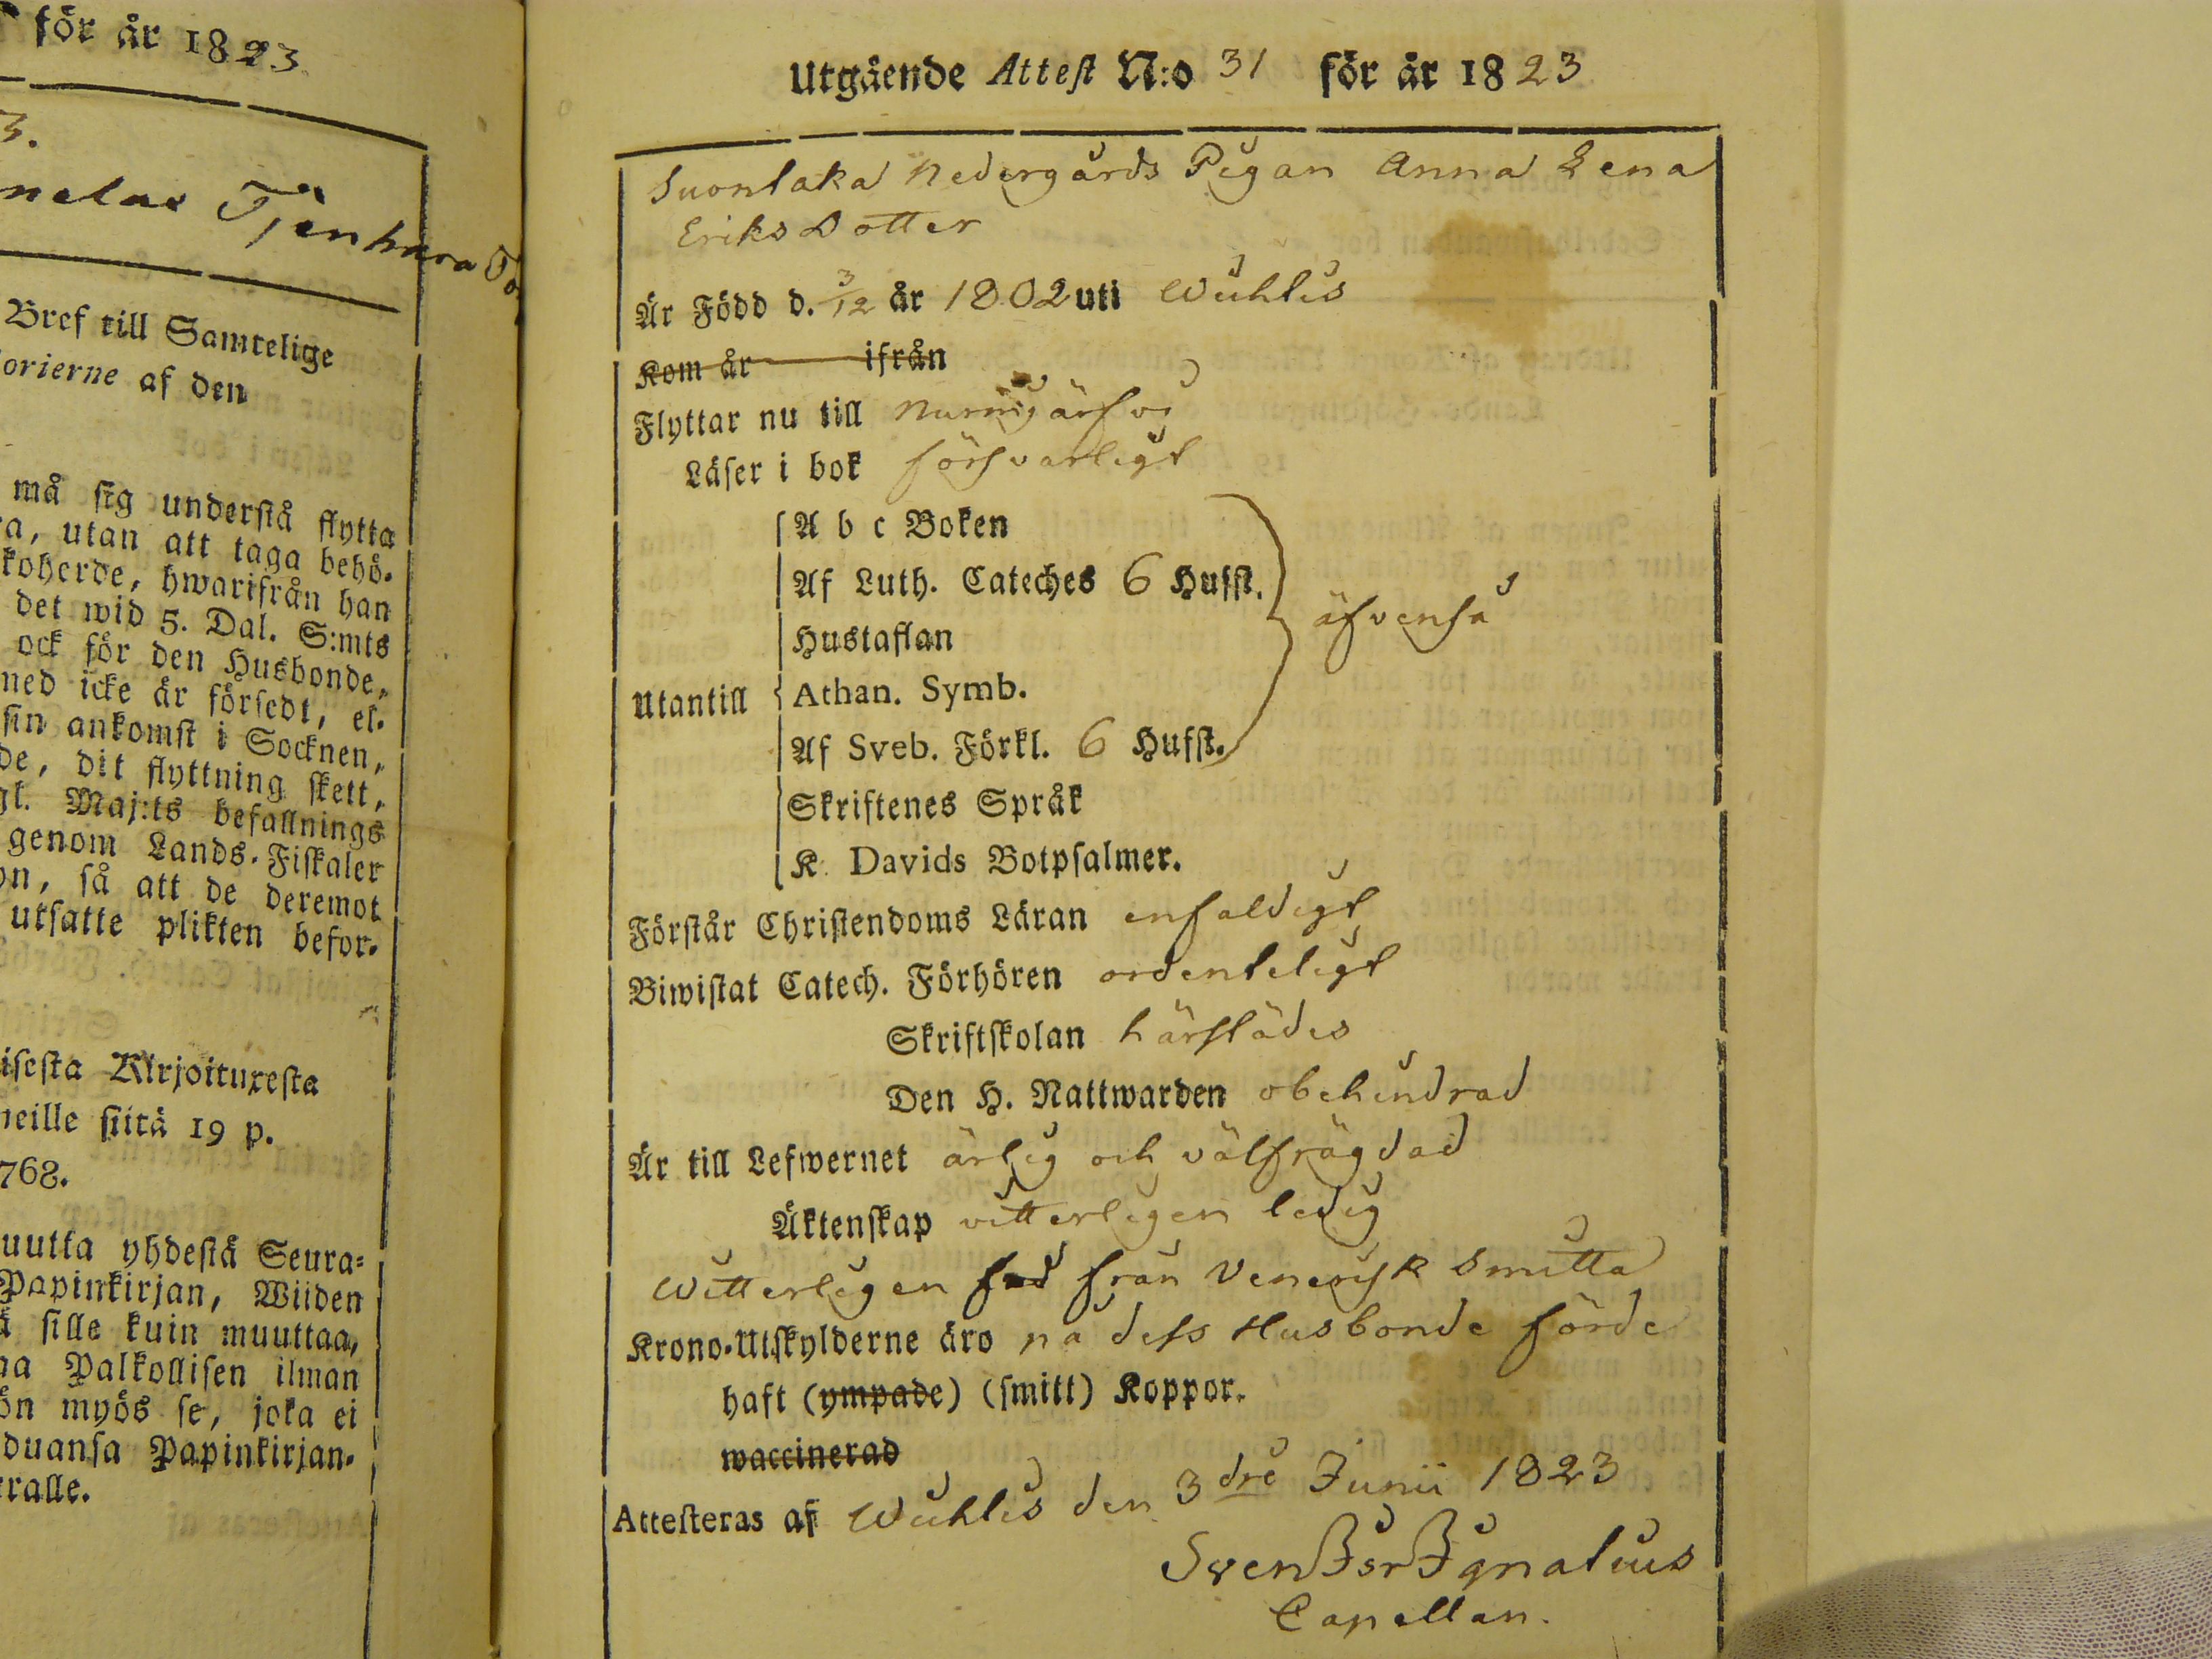 för år 1823
3.
nelas Tjenhara To
Bref till Samtelige
orierne af den
må sig understå flytta
a, utan att taga behö-
koherde, hwarifrån han
det wid 5. Dal. S:mts
ock för den Husbonde,
ned icke är försedt, el-
sin ankomst i Socknen,
de, dit flyttning skett,
gl. Maj:ts befallnings
genom Lands-Fiskaler
on, så att de deremot
utsatte plikten befor-
isesta Kirjoituxesta
neille siitä 19 p.
768.
uutta yhdestä Seura-
Papinkirjan, Wiiden
ä sille kuin muuttaa,
na Palkollisen ilman
ön myös se, joka ei
duansa Papinkirjan-
ralle.
Utgående Attest N:o 31 för år 1823
Suontaka Nedergårds Pigan Anna Lena
Eriks Dotter
Är Född d. 3/12 år 1802 uti Wichtis
Kom år ifrån
Flyttar nu till Nurmijärfvi
Läser i bok försvarligt
A b c Boken
Af Luth. Cateches 6 Hufst.
Hustaflan äfvenså
Utantill Athan. Symb.
Af Sveb. Förkl. 6 Hufst.
Skriftenes Språk
K. Davids Botpsalmer.
Förstår Christendoms Läran enfaldigt
Biwistat Catech. Förhören ordenteligt
Skriftskolan härstädes
Den H. Nattwarden obehindrad
Är till Lefwernet ärlig och välfrägdad
Äktenskap vitterligen ledig
Witterligen från Venerisk Smitta
Krono-Utskylderne äro på dess Husbonde förde
haft (ympade) (smitt) Koppor.
waccinerad
Attesteras af Wichtis den 3dre Junii 1823
Sven Isr Ignatius
Capellan.